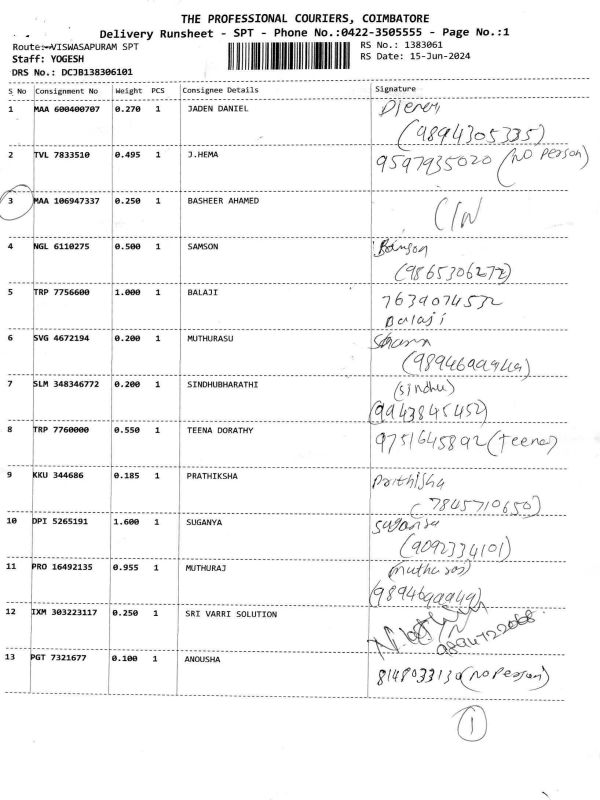 THE PROFESSIONAL COURIERS, COIMBATORE
Delivery Runsheet - SPT - Phone No.:0422-3505555 - Page No.:1
Route:-VISWASAPURAM SPT
RS No.: 1383061
Staff: YOGESH
RS Date: 15-Jun-2024
DRS No.: DCJB138306101
S No Consignment No Weight PCS Consignee Details Signature
1 MAA 600400707 0.270 1 JADEN DANIEL
(9894305335)
2 TVL 7833510 0.495 1 J.HEMA 9597935020 (NO Person)
3 MAA 106947337 0.250 1 BASHEER AHAMED
C/N
4 NGL 6110275 0.500 1 SAMSON
(9865306272)
5 TRP 7756600 1.000 1 BALAJI 7639074532
Balaji
6 SVG 4672194 0.200 1 MUTHURASU
7 SLM 348346772 0.200 1 SINDHUBHARATHI (Sindhu)
(9943845452)
8 TRP 7760000 0.550 1 TEENA DORATHY 9751645892 (Teena)
9 KKU 344686 0.185 1 PRATHIKSHA
(7845710650)
10 DPI 5265191 1.600 1 SUGANYA
(9092334101)
11 PRO 16492135 0.955 1 MUTHURAJ
12 IXM 303223117 0.250 1 SRI VARRI SOLUTION
13 PGT 7321677 0.100 1 ANOUSHA (NO Person)
1